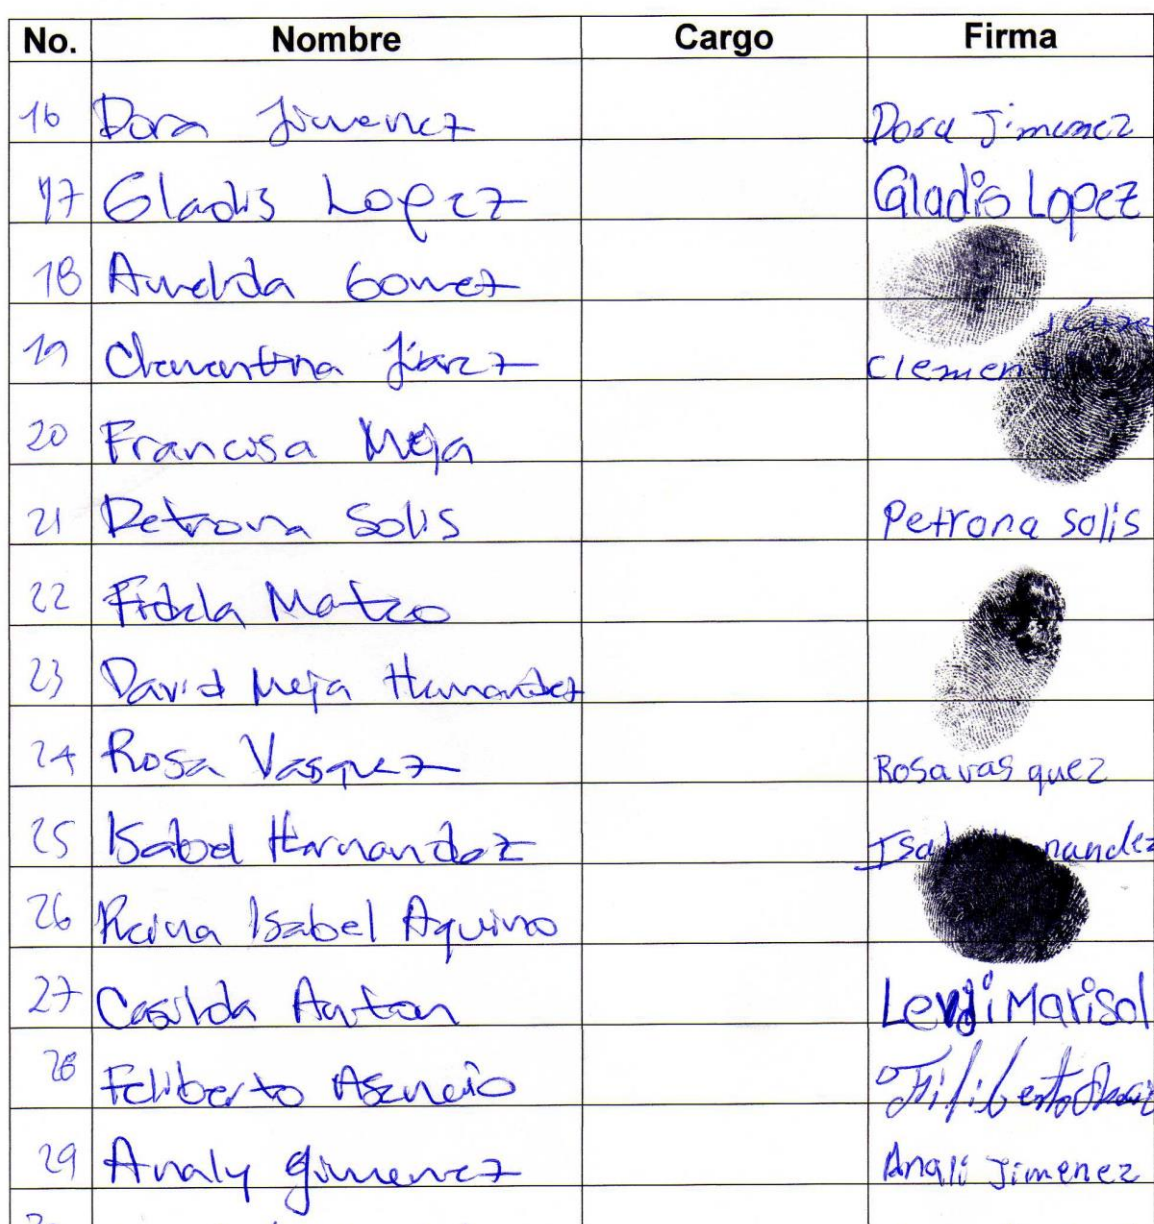 No. Nombre Cargo Firma
16 Dora Jimenez Dora Jimenez
17 Gladis Lopez Gladis Lopez
18 Amelida Gomez
19 Clementina Clemen
20 Francisa Mejia
21 Petrona Solis Petrona Solis
22 Fidela Mateo
23 David Mejia Hernandez
24 Rosa Vasquez Rosa vas quez
25 Isabel Hernandez Isa nandez
26 Reina Isabel Aquino
27 Casilda Anton Marisol
28 Feliberto Asencio Filiberto
29 Analy Gimenez Anali Jimenez